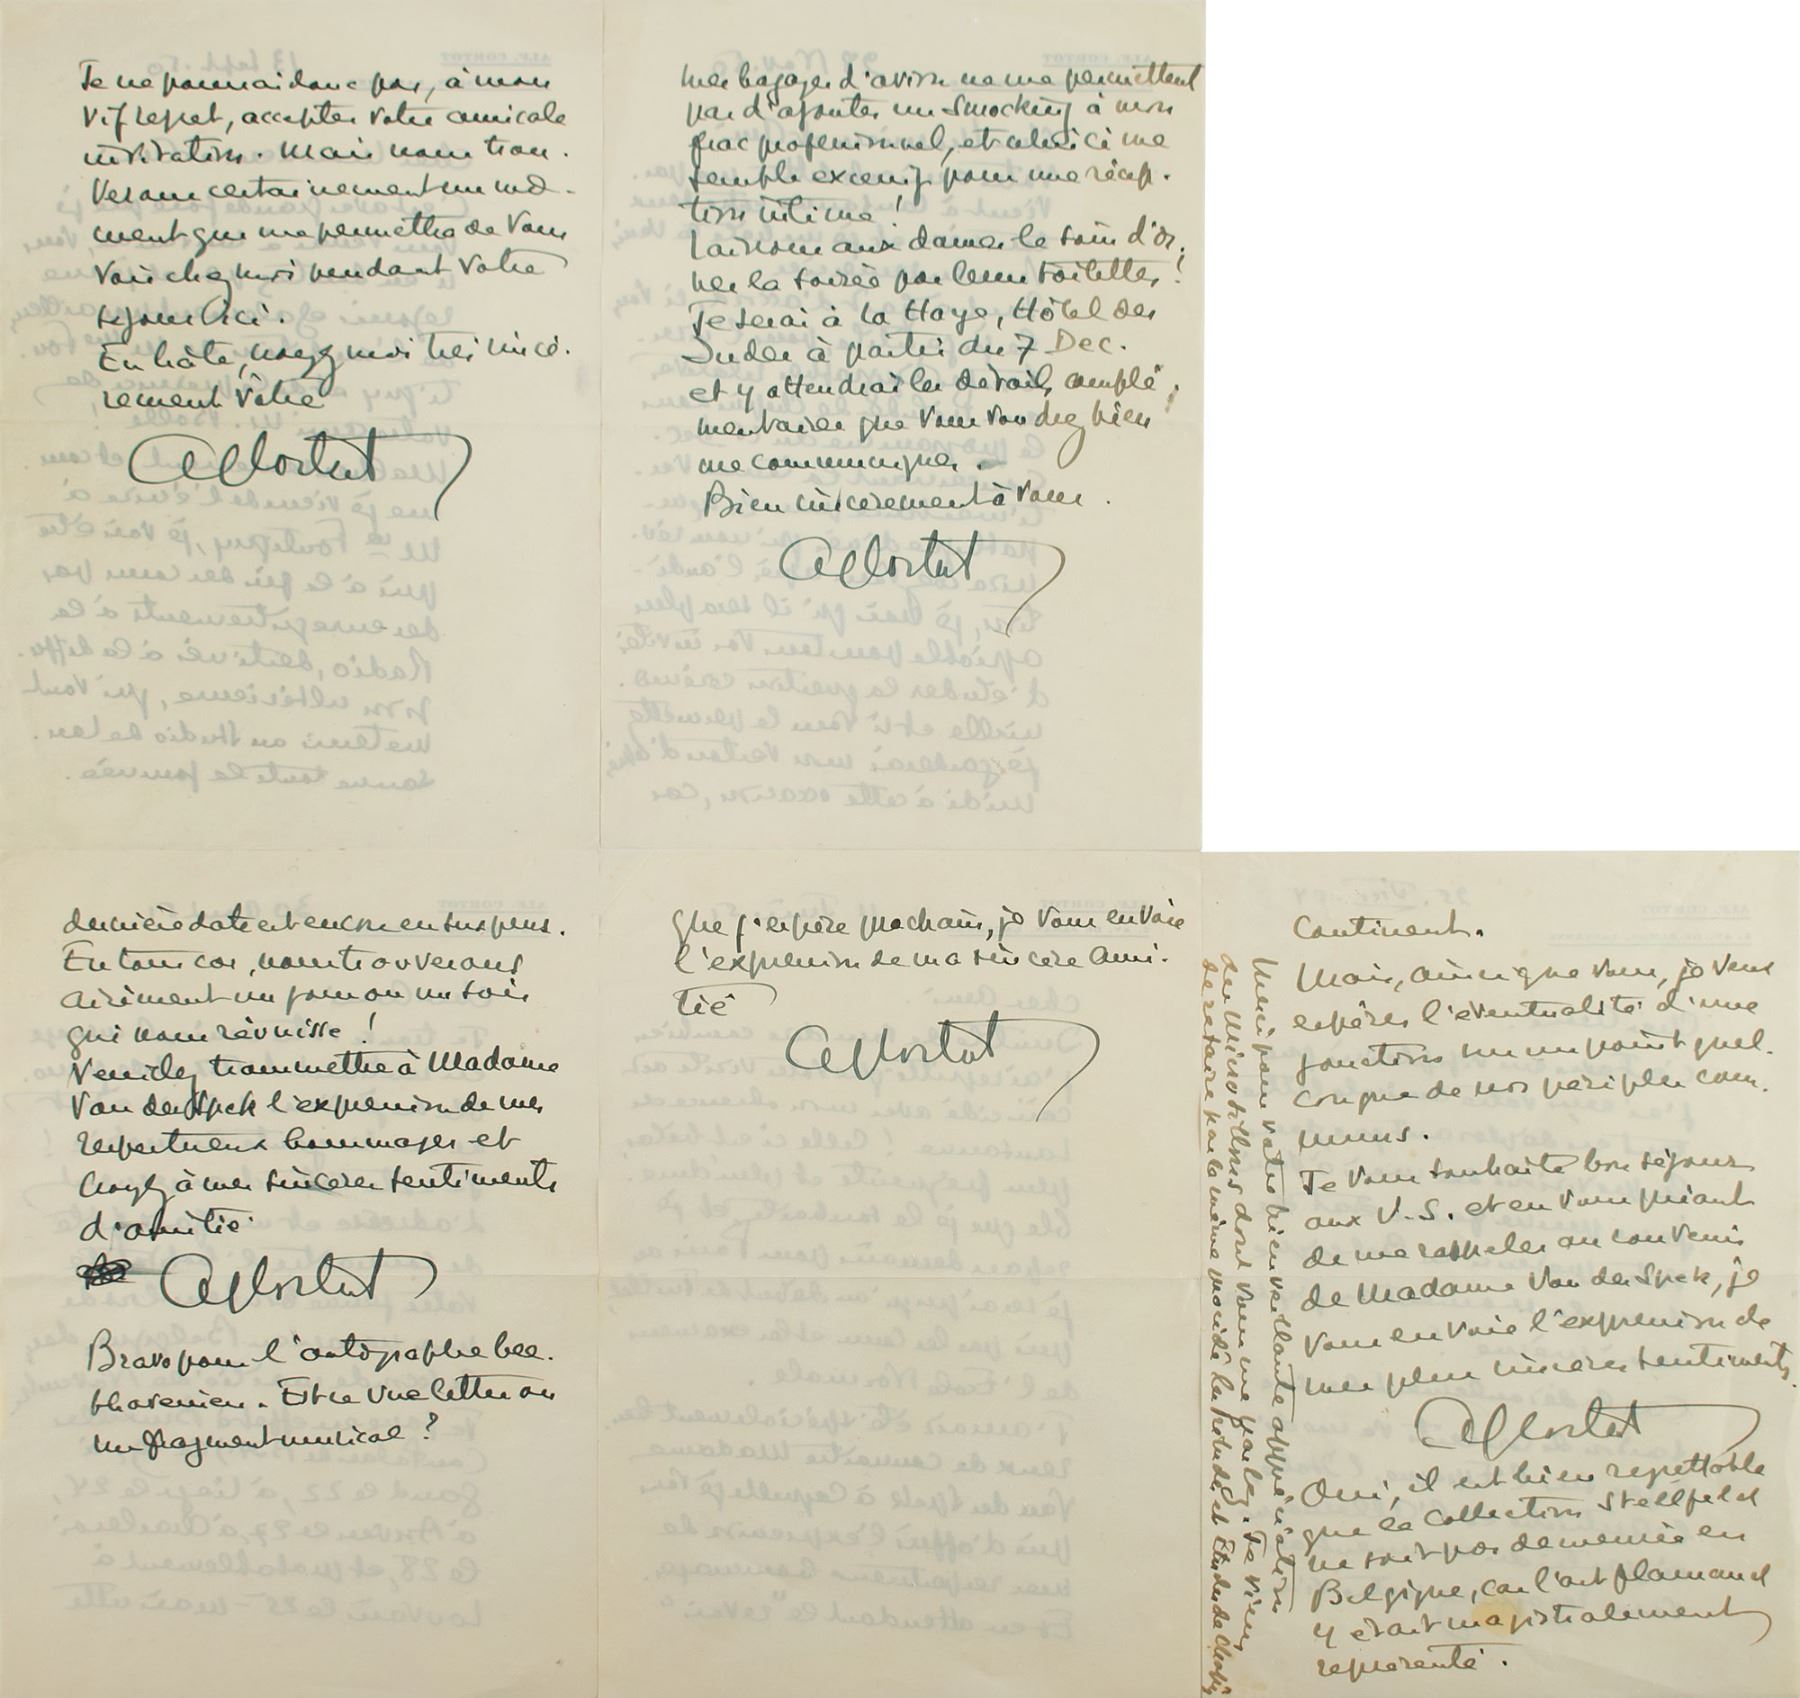 Je ne pourrai donc pas, à mon
vif regret, accepter votre amicale
invitation. Mais nous trou-
verons certainement un mo-
ment qui me permettra de vous
voir chez moi pendant votre
séjour ici.
En hâte, croyez moi très sincè-
rement vôtre
Alf Cortot
mes bagages d'avion ne me permettent
pas d'ajouter un smocking à mon
frac professionnel, et celui ci me
semble excessif pour une récep-
tion intime!
Laissons aux dames le soin d'or-
ner la soirée par leurs toilettes!
Je serai à la Haye, Hôtel des
Indes à partir du 7 Dec.
et y attendrai les détails complé-
mentaires que vous voudrez bien
me communiquer.
Bien sincèrement à vous.
Alf Cortot
dernière date est encore en suspens.
En tous cas, nous trouverons
aisément un jour ou un soir
qui nous réunisse!
Veuillez transmettre à Madame
Van der Spek l'expression de mes
respectueux hommages et
croyez à mes sincères sentiments
d'amitié
Alf Cortot
Bravo pour l'autographe bee-
thovenien. Est ce une lettre ou
un fragment musical?
que j'espère prochain, je vous envoie
l'expression de ma sincère ami-
tié
Alf Cortot
Continent.
Mais, ainsi que vous, je veux
espérer l'éventualité d'une
jonction sur un point quel-
conque de nos périples com-
muns.
Je vous souhaite bon séjour
aux U.S. et en vous priant
de me rappeler au souvenir
de Madame Van der Spek, je
vous envoie l'expression de
mes plus sincères sentiments.
Alf Cortot
Oui, il est bien regrettable
que la Collection Stellfeld
ne soit pas demeurée en
Belgique, car l'art flamand
y était magistralement
représenté.
Merci pour votre bienveillante appréciation
des microsillons dont vous me parlez. Je viens
de refaire par le même procédé les Préludes et Etudes de Chopin